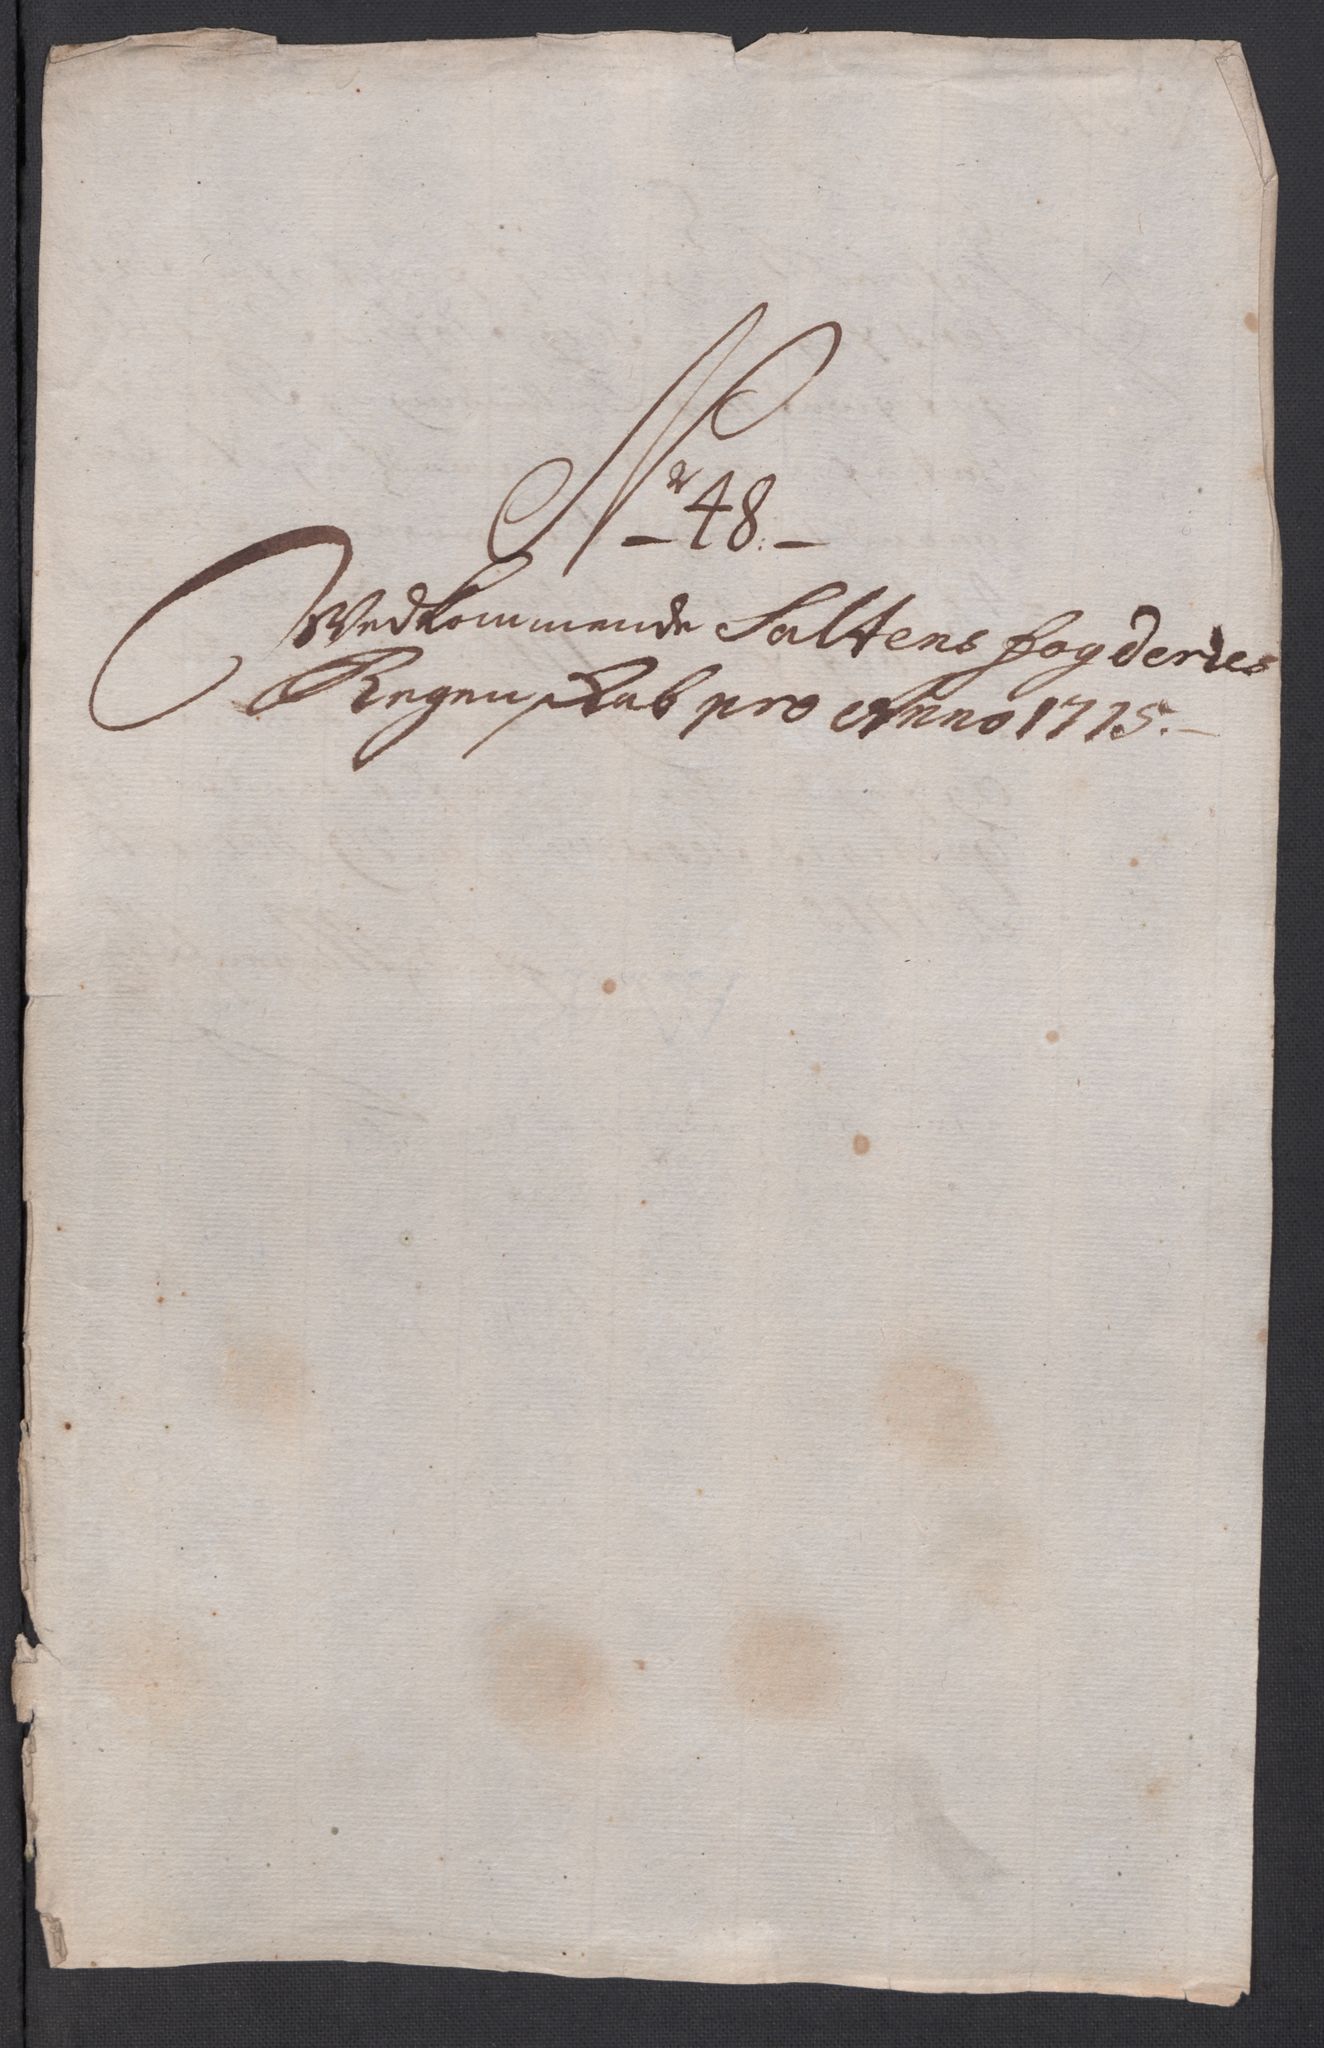 Nr 48.
Vedkommende Saltens fogderies
Regenskab pro Anno 1715.